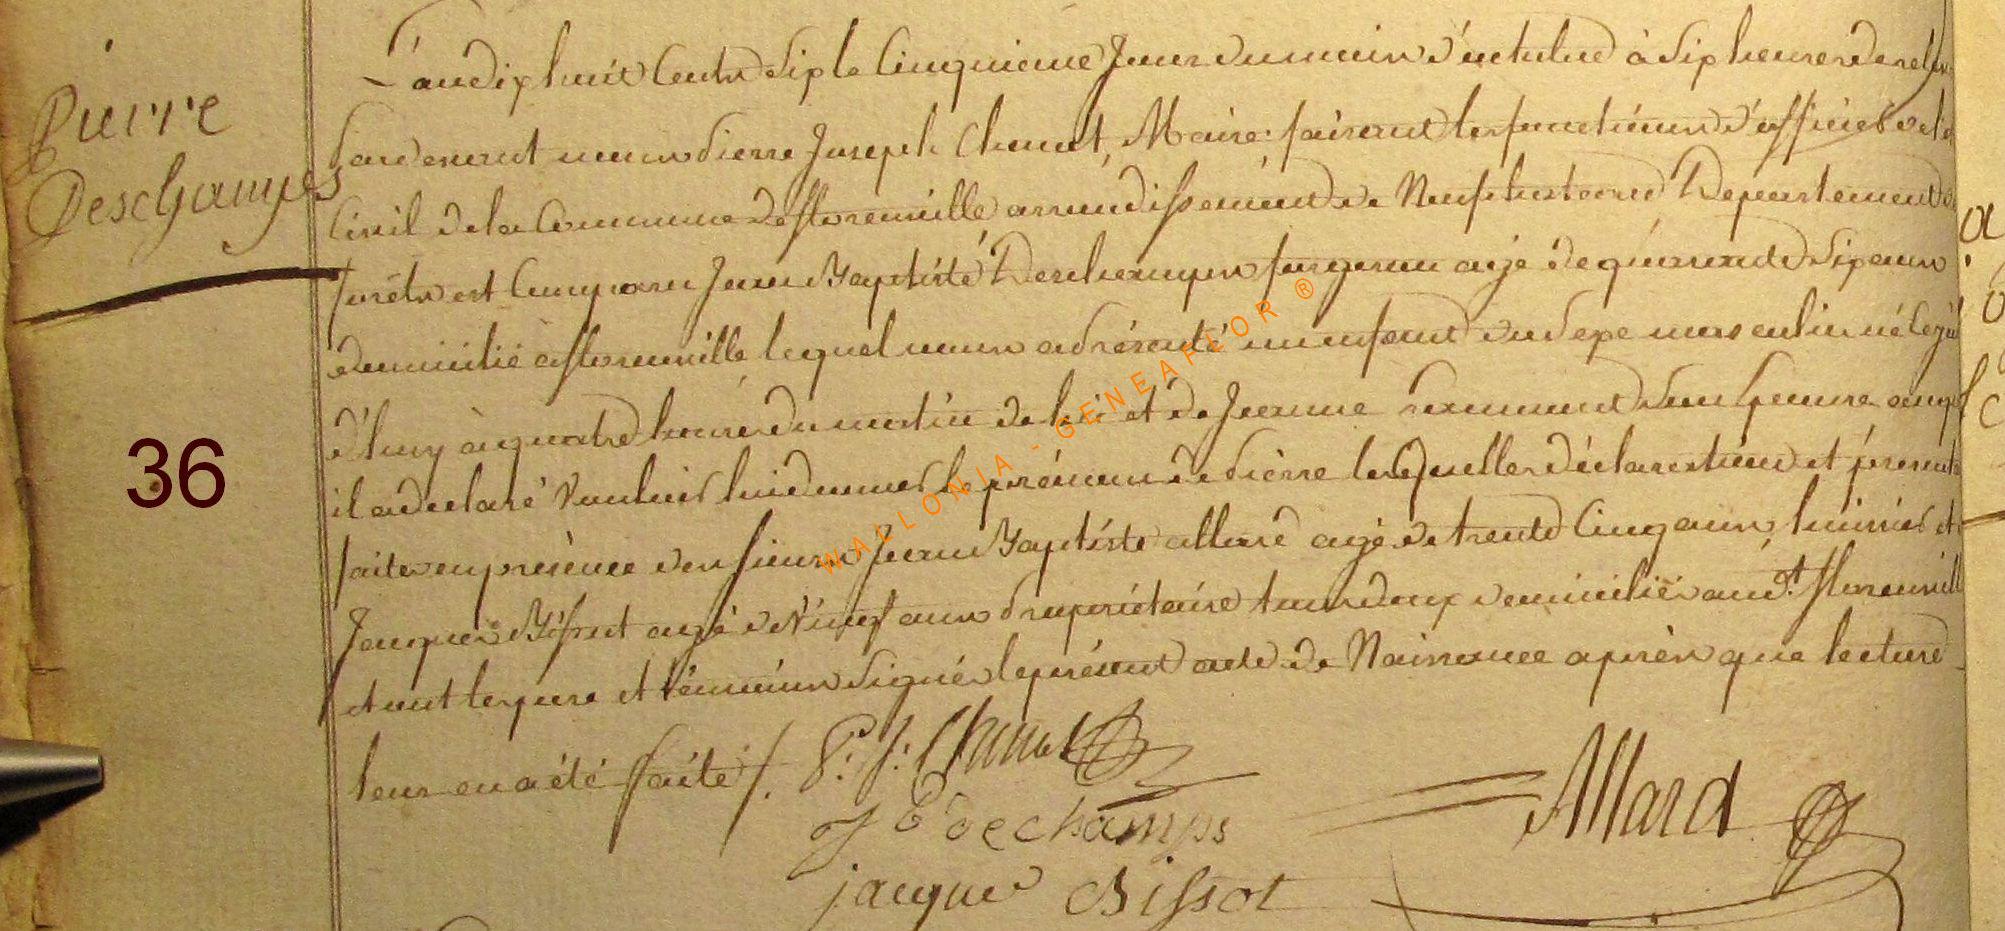 Pierre
Deschamps
36
L'an dix huit Cents Six le Cinquieme Jour du mois d'octobre à Six heures de rele
Pardevant nous Pierre Joseph Chenet, Maire faisant les fonctions d'officier de l'é
Civil de la Commune de florenville arrondissement de Neufchateau Departement d
forêts est Comparu Jean Baptiste Deschamps forgeron agé de quarante Six ans
domicilié a florenville, lequel nous a Présenté un enfant du Sexe masculin né Ce jou
d'huy à quatre heures du matin de lui et de Jeanne Son Epouse auquel
il a declaré Vouloir lui donner le prénom de Pierre lesQuelles déclaration et présent
faites en présence des Sieurs Jean Baptiste allard agé de trente Cinq ans, huissier et
Jacques Bissot agé de Vingt ans Propriétaire tous deux domiciliés aud.t florenvill
et ont les pere et témoins Signé le présent acte de Naissance après que lecture
leur en a été faite /.
P: J: Chenet
J B dechamps
Allard
jacque Bissot
WALLONIA - GENEAFLOR ®